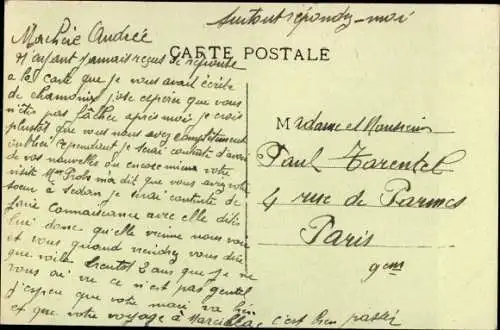 Surtout répondez-moi
Ma chère Andrée
CARTE POSTALE
N'ayant jamais reçus de réponse
a la carte que je vous avait écrite
de chamonix j'ose espérer que vous
n'êtes pas fâchée après moi, je crois
plustôt que vous nous avez complètement
oublier Cependant je serai contente d'avoir
de vos nouvelle ou encore mieux votre
visite Mme m'a dit que vous aviez votre
soeur a Sedan je serai contente de
faire connaissance avec elle dites
lui donc qu'elle vienne nous voir
et vous quand viendrez vous dire
que voilà bientôt 2 ans que je ne
vous ai vu ce n'est pas gentil
j'espère que votre mari va bien
et que votre voyage à c'est bien passée
Madame et Monsieur
Paul Tarentel
4 rue de Parmes
Paris
9em